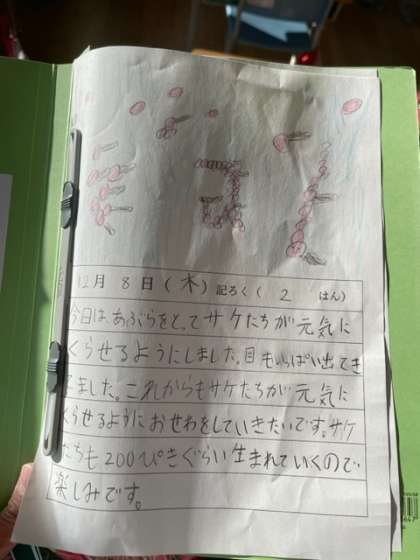 12月 8日(木) 記ろく( 2 はん)
今日は、あぶらをとってサケたちが元気に
くらせるようにしました。目もいっぱい出てき
てました。これからもサケたちが元気に
くらせるようにおせわをしていきたいです。サケ
たちも200ぴきぐらい生まれていくので
楽しみです。